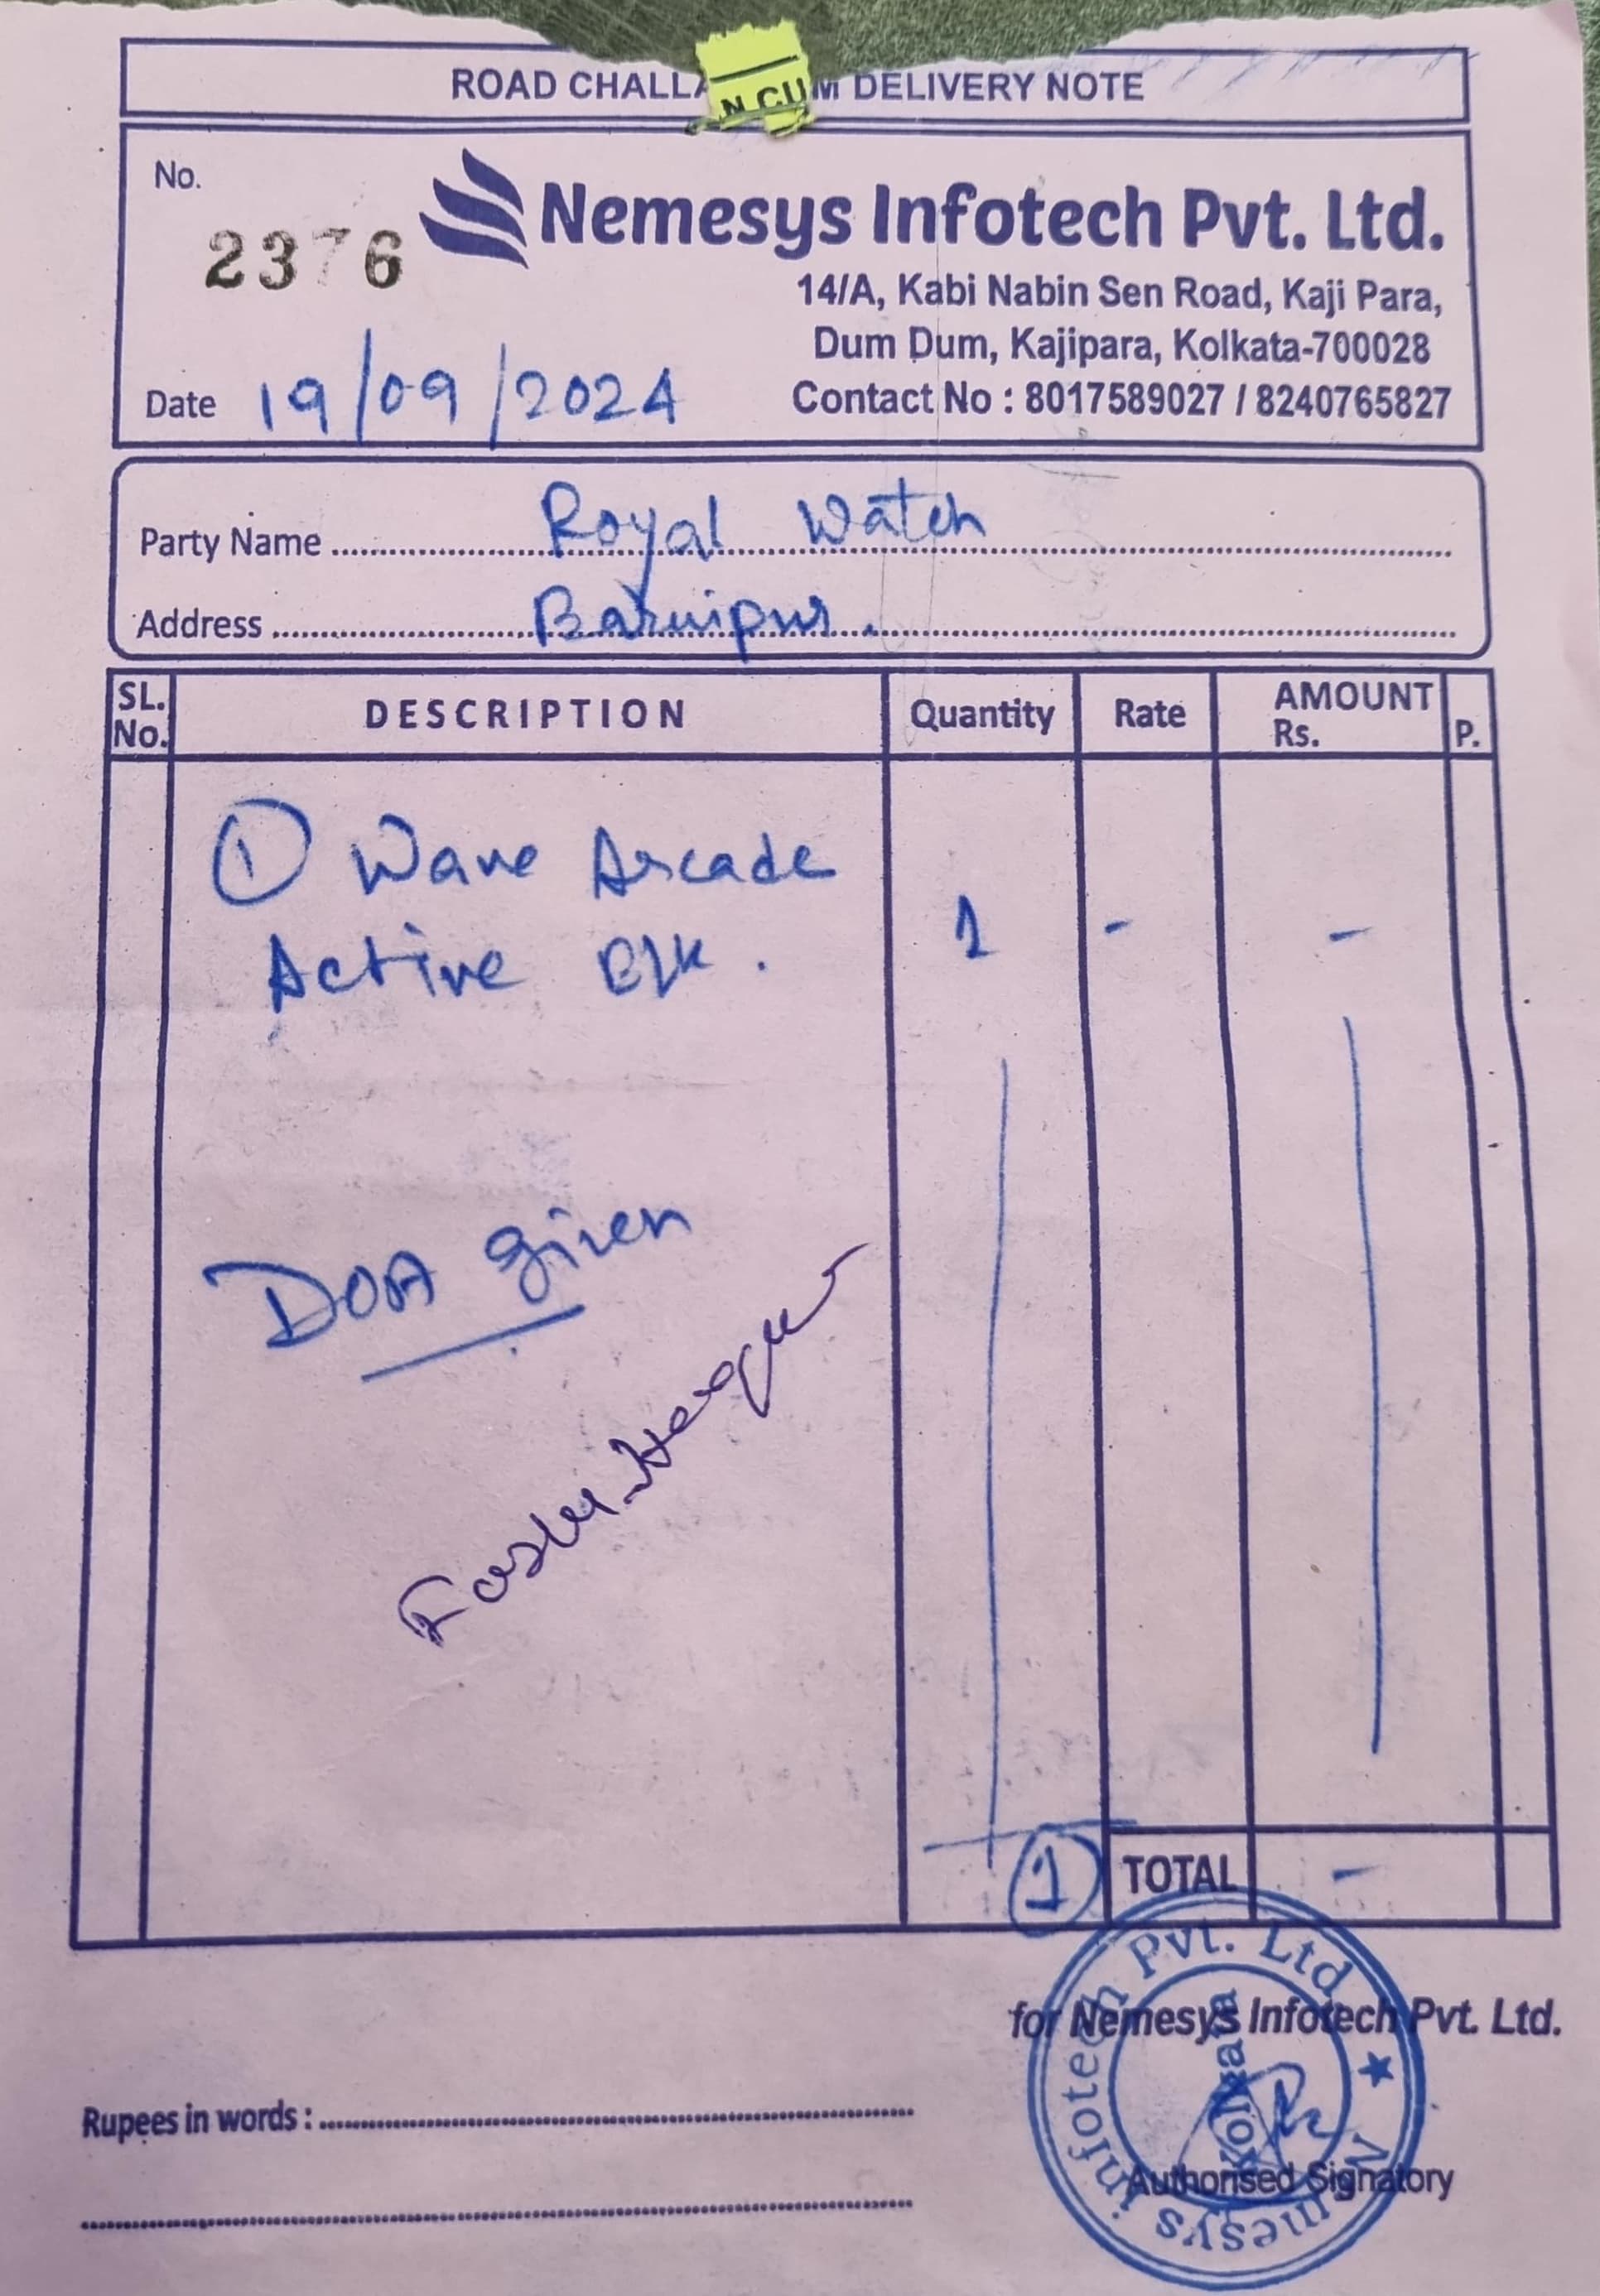 ROAD CHALLA N CU M DELIVERY NOTE
No.
2376
Nemesys Infotech Pvt. Ltd.
14/A, Kabi Nabin Sen Road, Kaji Para,
Dum Dum, Kajipara, Kolkata-700028
Contact No : 8017589027 / 8240765827
Date 19/09/2024
Party Name Royal Watch
Address Baruipur.
SL. No. DESCRIPTION Quantity Rate AMOUNT Rs. P.
① Wave Arcade
Active Blk. 1 - -
DOA given
1 TOTAL -
for Nemesys Infotech Pvt. Ltd.
Nemesys Infotech Pvt. Ltd
Kolkata
Rupees in words :
Authorised Signatory